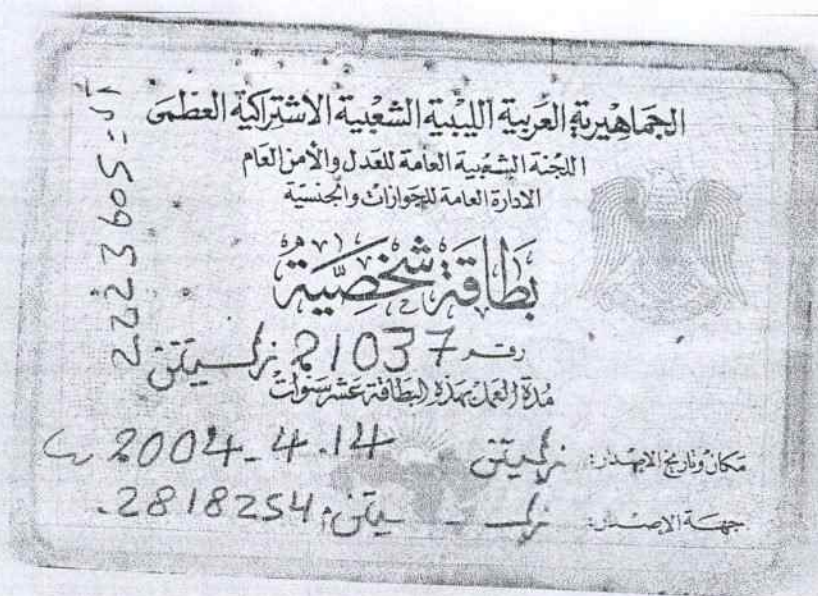 الجماهيرية العربية الليبية الشعبية الاشتراكية العظمى
اللجنة الشعبية العامة للعدل والأمن العام
الادارة العامة للجوازات والجنسية
بطاقة شخصية
رقم 21037 زليتن
مدة العمل بهذه البطاقة عشر سنوات
مكان وتاريخ الاصدار: زليتن 2004.4.14
جهة الاصدار: زليتن 2818254
223605